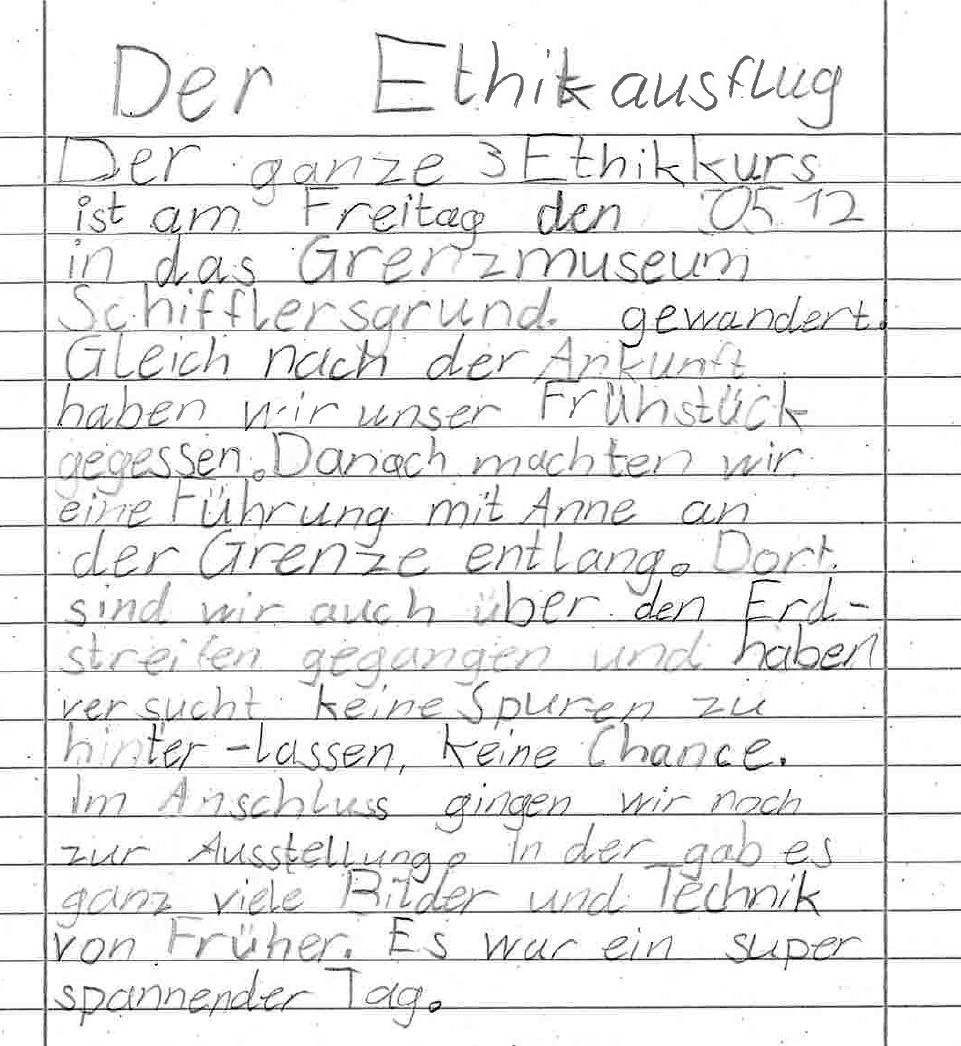 Der Ethikausflug
Der ganze 3 Ethikkurs
ist am Freitag den 05 12
in das Grenzmuseum
Schifflersgrund. gewandert.
Gleich nach der Ankunft
haben wir unser Frühstück
gegessen. Danach machten wir
eine Führung mit Anne an
der Grenze entlang. Dort
sind wir auch über den Erd-
streifen gegangen und haben
versucht keine Spuren zu
hinter-lassen, keine Chance.
Im Anschluss gingen wir noch
zur Ausstellung. In der gab es
ganz viele Bilder und Technik
von Früher. Es war ein super
spannender Tag.